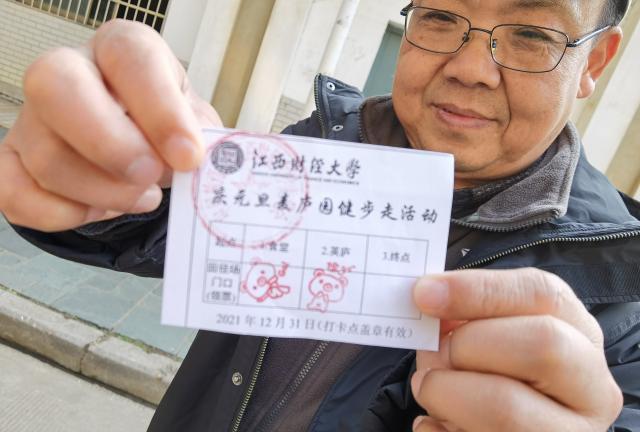 江西财经大学
庆元旦麦庐园健步走活动
起点 1.食堂 2.英庐 3.终点
田径场
门口
(领票)
2021年12月31日(打卡点盖章有效)